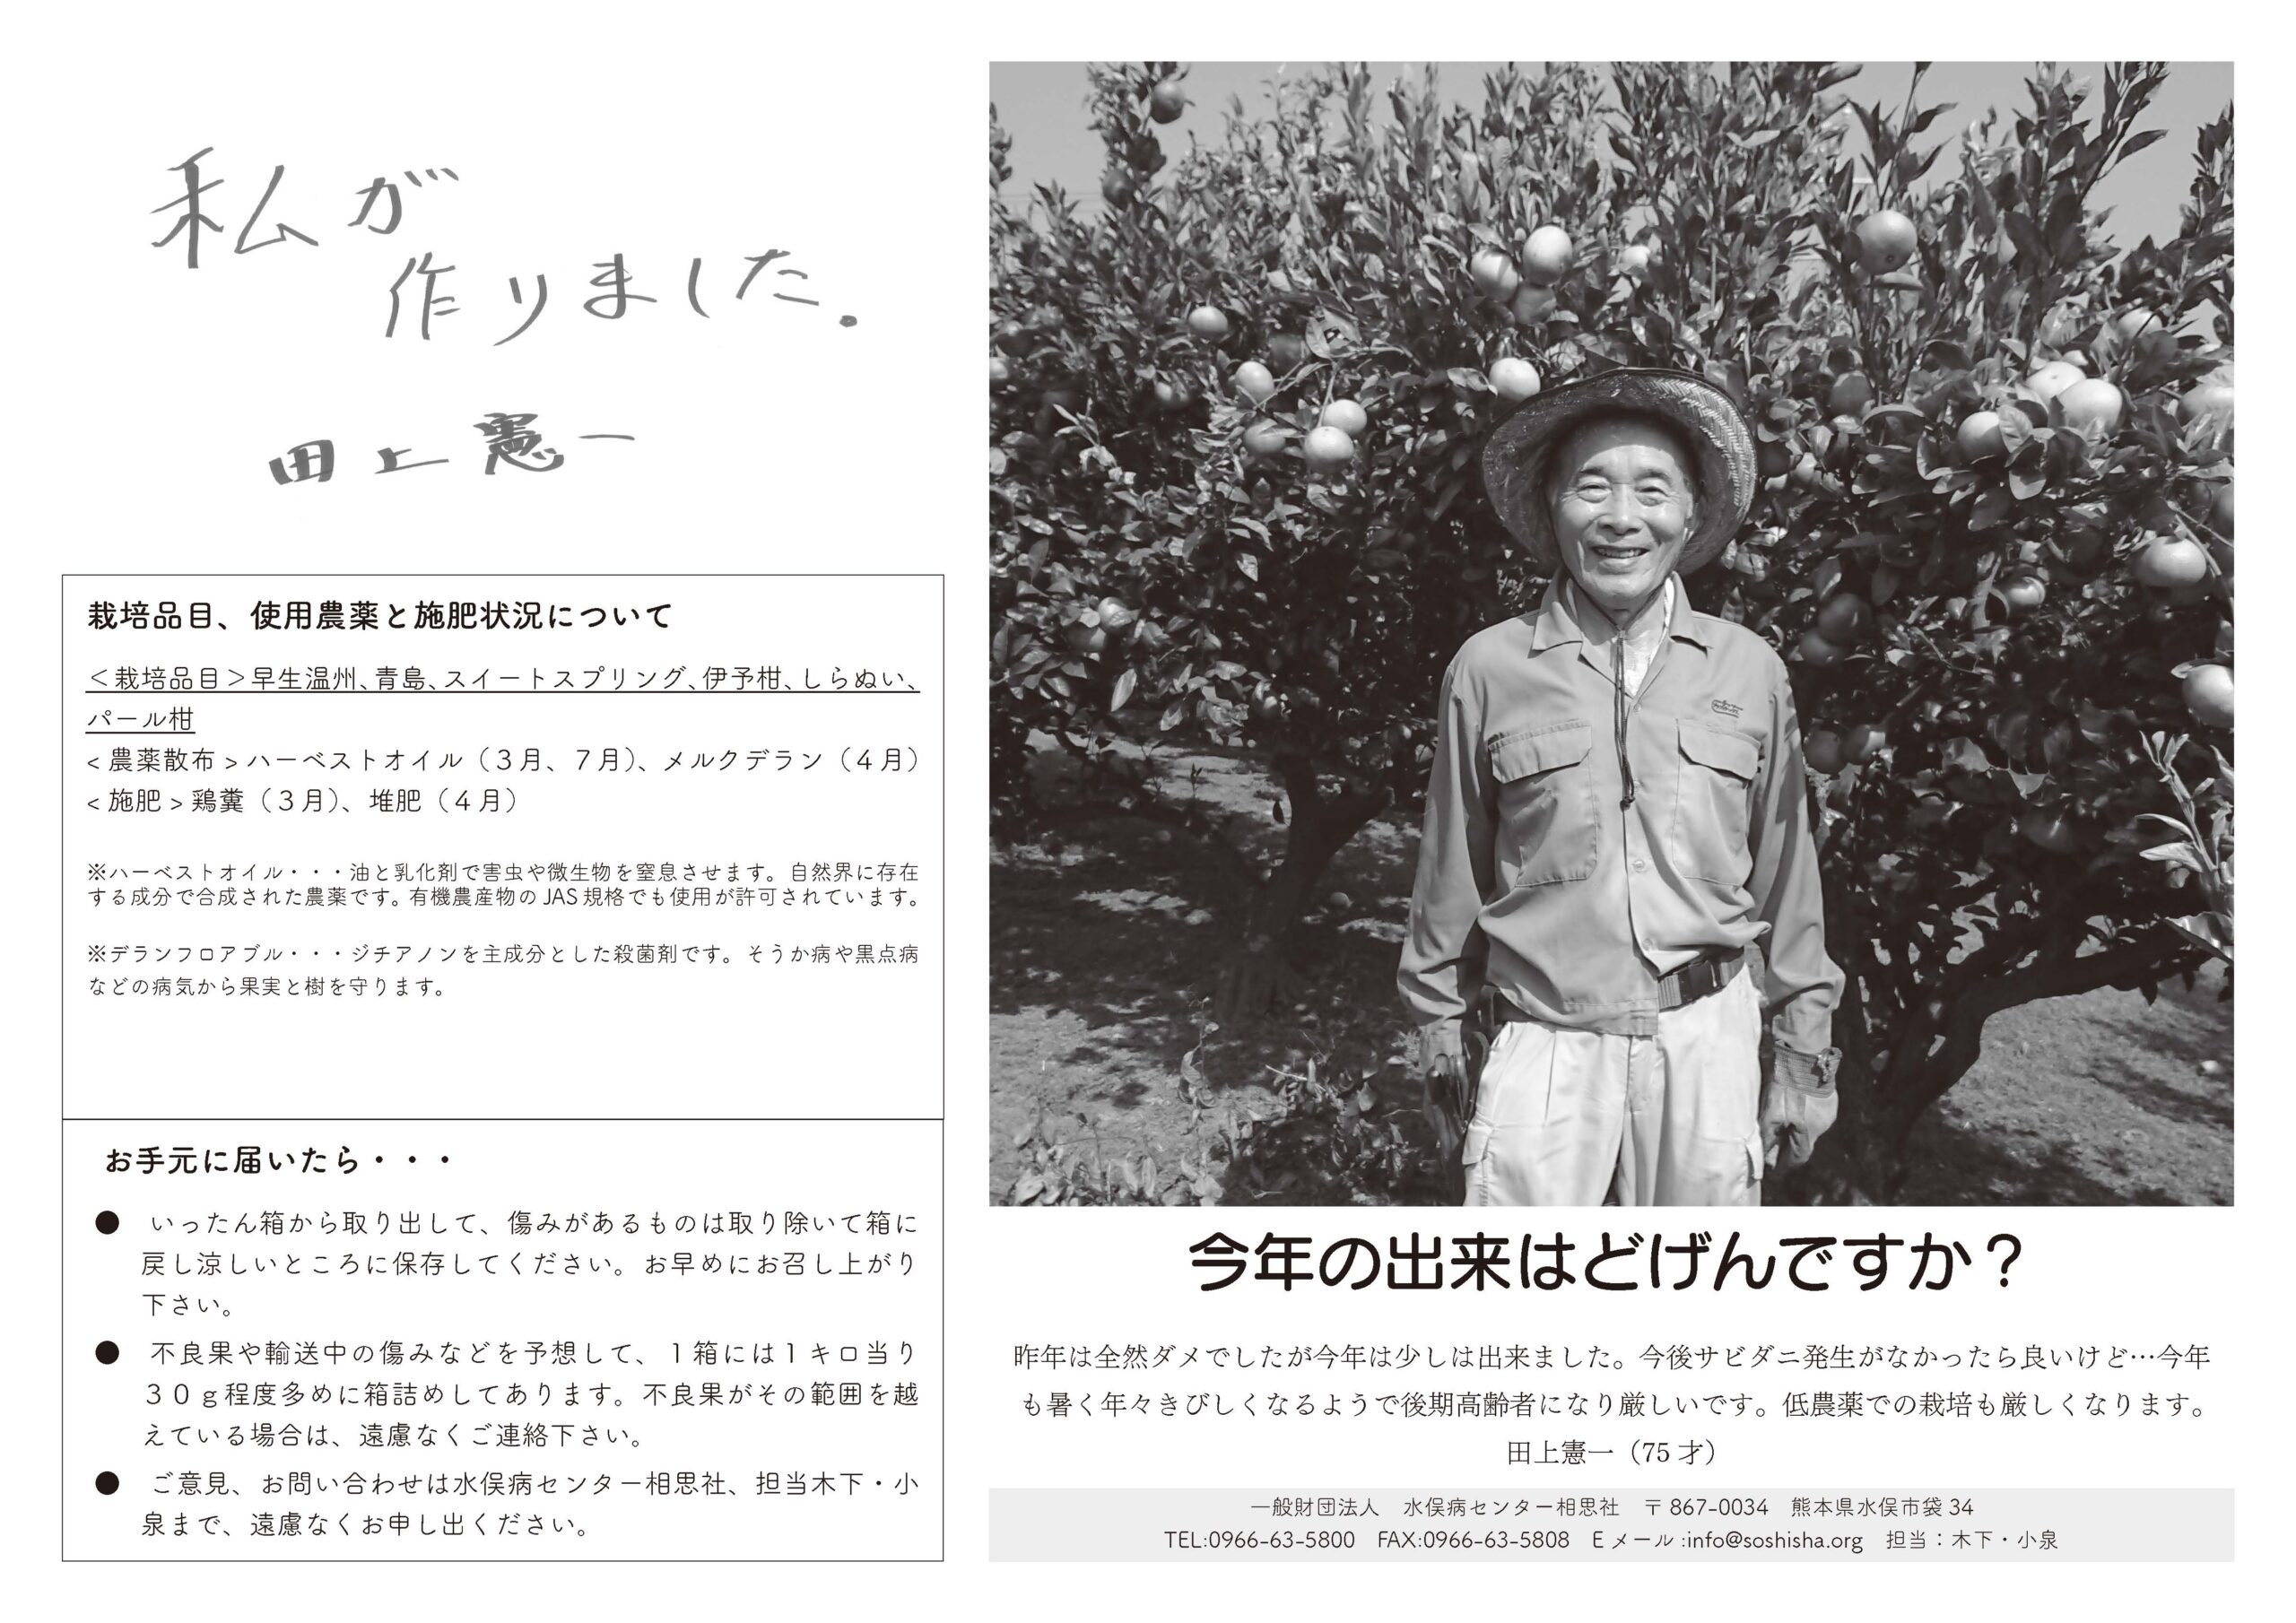 私が
作りました.
田上憲一
栽培品目、使用農薬と施肥状況について
＜栽培品目＞早生温州、青島、スイートスプリング、伊予柑、しらぬい、
パール柑
< 農薬散布 > ハーベストオイル（３月、７月）、メルクデラン（４月）
< 施肥 > 鶏糞（３月）、堆肥（４月）
※ハーベストオイル・・・油と乳化剤で害虫や微生物を窒息させます。自然界に存在
する成分で合成された農薬です。有機農産物の JAS 規格でも使用が許可されています。
※デランフロアブル・・・ジチアノンを主成分とした殺菌剤です。そうか病や黒点病
などの病気から果実と樹を守ります。
お手元に届いたら・・・
● いったん箱から取り出して、傷みがあるものは取り除いて箱に
戻し涼しいところに保存してください。お早めにお召し上がり
下さい。
● 不良果や輸送中の傷みなどを予想して、１箱には１キロ当り
３０ｇ程度多めに箱詰めしてあります。不良果がその範囲を越
えている場合は、遠慮なくご連絡下さい。
● ご意見、お問い合わせは水俣病センター相思社、担当木下・小
泉まで、遠慮なくお申し出ください。
今年の出来はどげんですか？
昨年は全然ダメでしたが今年は少しは出来ました。今後サビダニ発生がなかったら良いけど…今年
も暑く年々きびしくなるようで後期高齢者になり厳しいです。低農薬での栽培も厳しくなります。
田上憲一（75 才）
一般財団法人　水俣病センター相思社　〒 867-0034　熊本県水俣市袋 34
TEL:0966-63-5800　FAX:0966-63-5808　E メール :info@soshisha.org　担当：木下・小泉